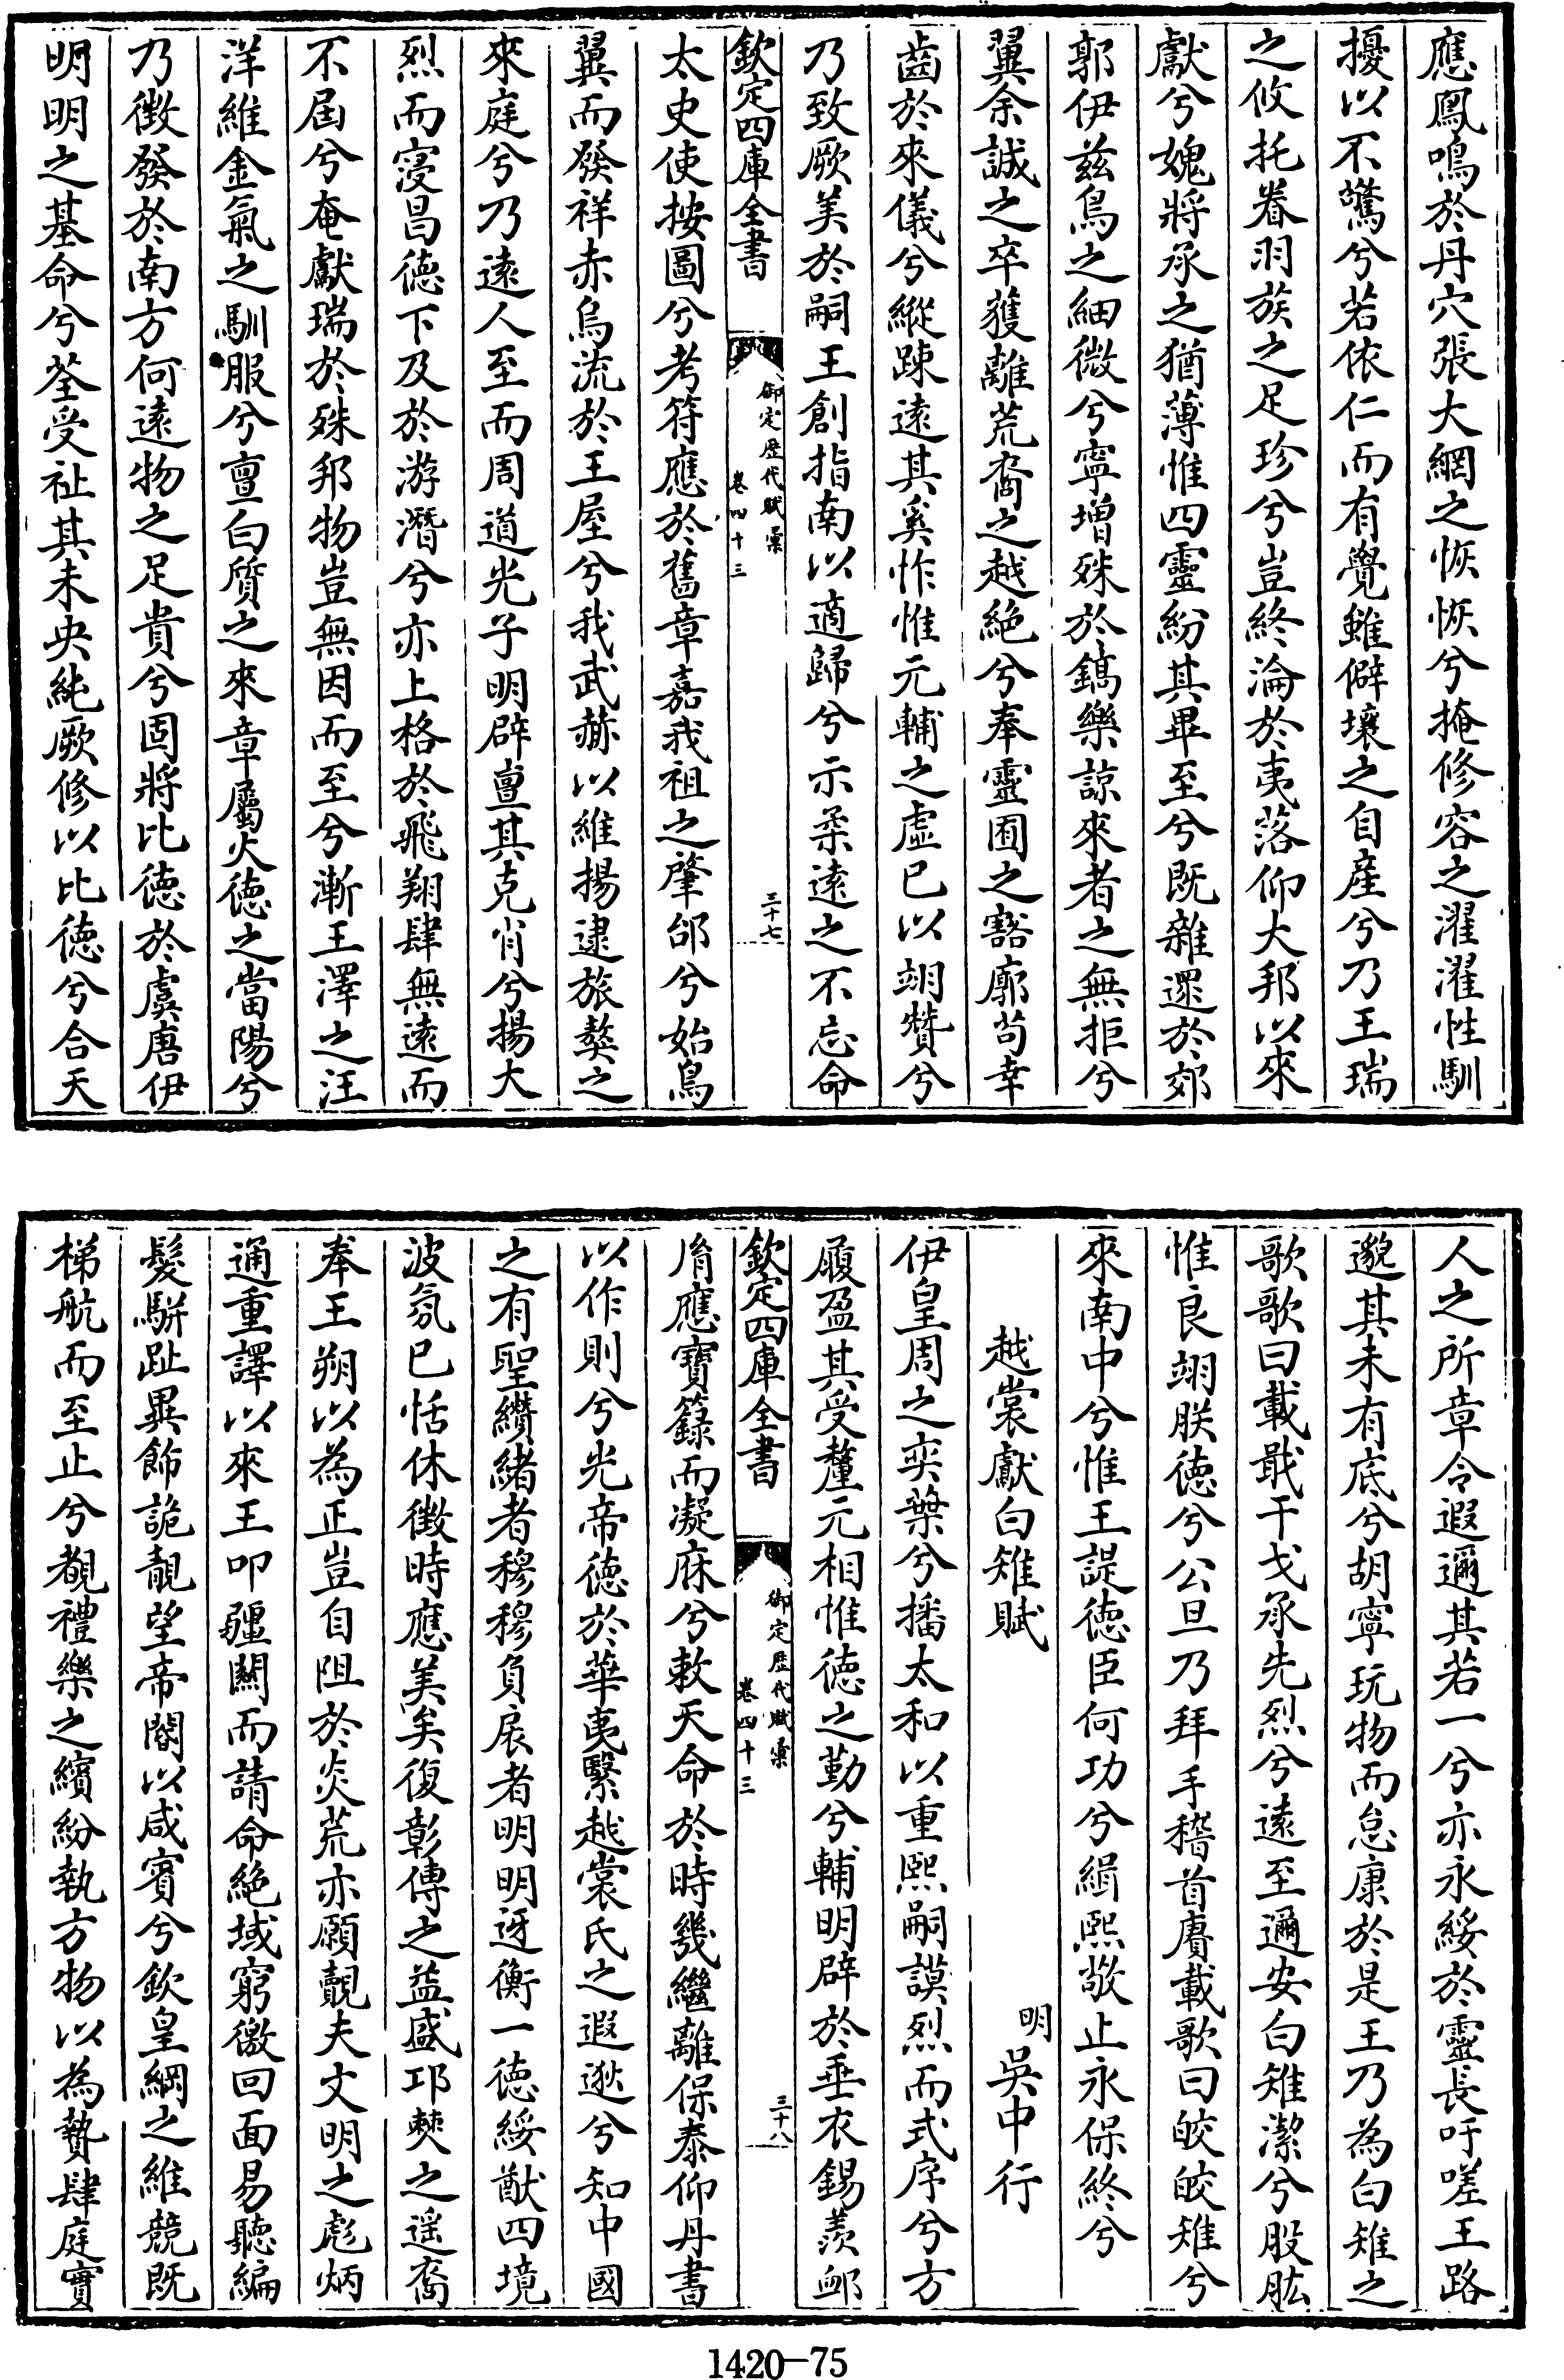 應鳳鳴於丹穴張大網之恢恢兮掩修容之濯濯性馴
擾以不驚兮若依仁而有覺雖僻壤之自産兮乃王瑞
之攸托眷羽族之足珍兮豈終淪於夷落仰大邦以來
獻兮媿將承之猶薄惟四靈紛其畢至兮既雜遝於郊
郭伊兹鳥之細微兮寧增殊於鎬樂諒來者之無拒兮
翼余誠之卒獲離荒裔之越絶兮奉靈囿之豁廓苟幸
齒於來儀兮縱踈遠其奚怍惟元輔之虚已以翊贊兮
乃致厥美於嗣王創指南以適歸兮示柔遠之不忘命
欽定四庫全書
御定歴代賦彙
卷四十三
三十七
太史使按圖兮考符應於舊章嘉我祖之肇邰兮始鳥
翼而發祥赤烏流於王屋兮我武赫以維揚逮旅獒之
來庭兮乃遠人至而周道光子明辟亶其克肖兮揚大
烈而寖昌徳下及於游潛兮亦上格於飛翔肆無遠而
不届兮奄獻瑞於殊邦物豈無因而至兮漸王澤之汪
洋維金氣之馴服兮亶白質之來章屬火徳之當陽兮
乃徴發於南方何遠物之足貴兮固將比徳於虞唐伊
明明之基命兮荃受祉其未央純厥修以比徳兮合天
人之所章令遐邇其若一兮亦永綏於靈長吁嗟王路
邈其未有底兮胡寧玩物而怠康於是王乃為白雉之
歌歌曰載戢干戈承先烈兮遠至邇安白雉潔兮股肱
惟良翊朕徳兮公旦乃拜手稽首賡載歌曰皎皎雉兮
來南中兮惟王諟徳臣何功兮緝熙敬止永保終兮
越裳獻白雉賦
明吳中行
伊皇周之奕葉兮播太和以重熙嗣謨烈而式序兮方
履盈其受釐元相惟徳之勤兮輔明辟於垂衣錫羨卹
欽定四庫全書
御定歴代賦彙
卷四十三
三十八
胤應寳籙而凝庥兮敕天命於時幾繼離保泰仰丹書
以作則兮光帝徳於華夷繄越裳氏之遐逖兮知中國
之有聖纘緒者穆穆負扆者明明迓衡一徳綏猷四境
波氛已恬休徴時應美矣復彰傳之益盛邛僰之遥裔
奉王朔以為正豈自阻於炎荒亦願覿夫文明之彪炳
通重譯以來王叩疆關而請命絶域窮徼回面易聽編
髮駢趾異飾詭靚望帝閽以咸賓兮欽皇綱之維競既
梯航而至止兮覩禮樂之繽紛執方物以為贄肆庭實
1420—75